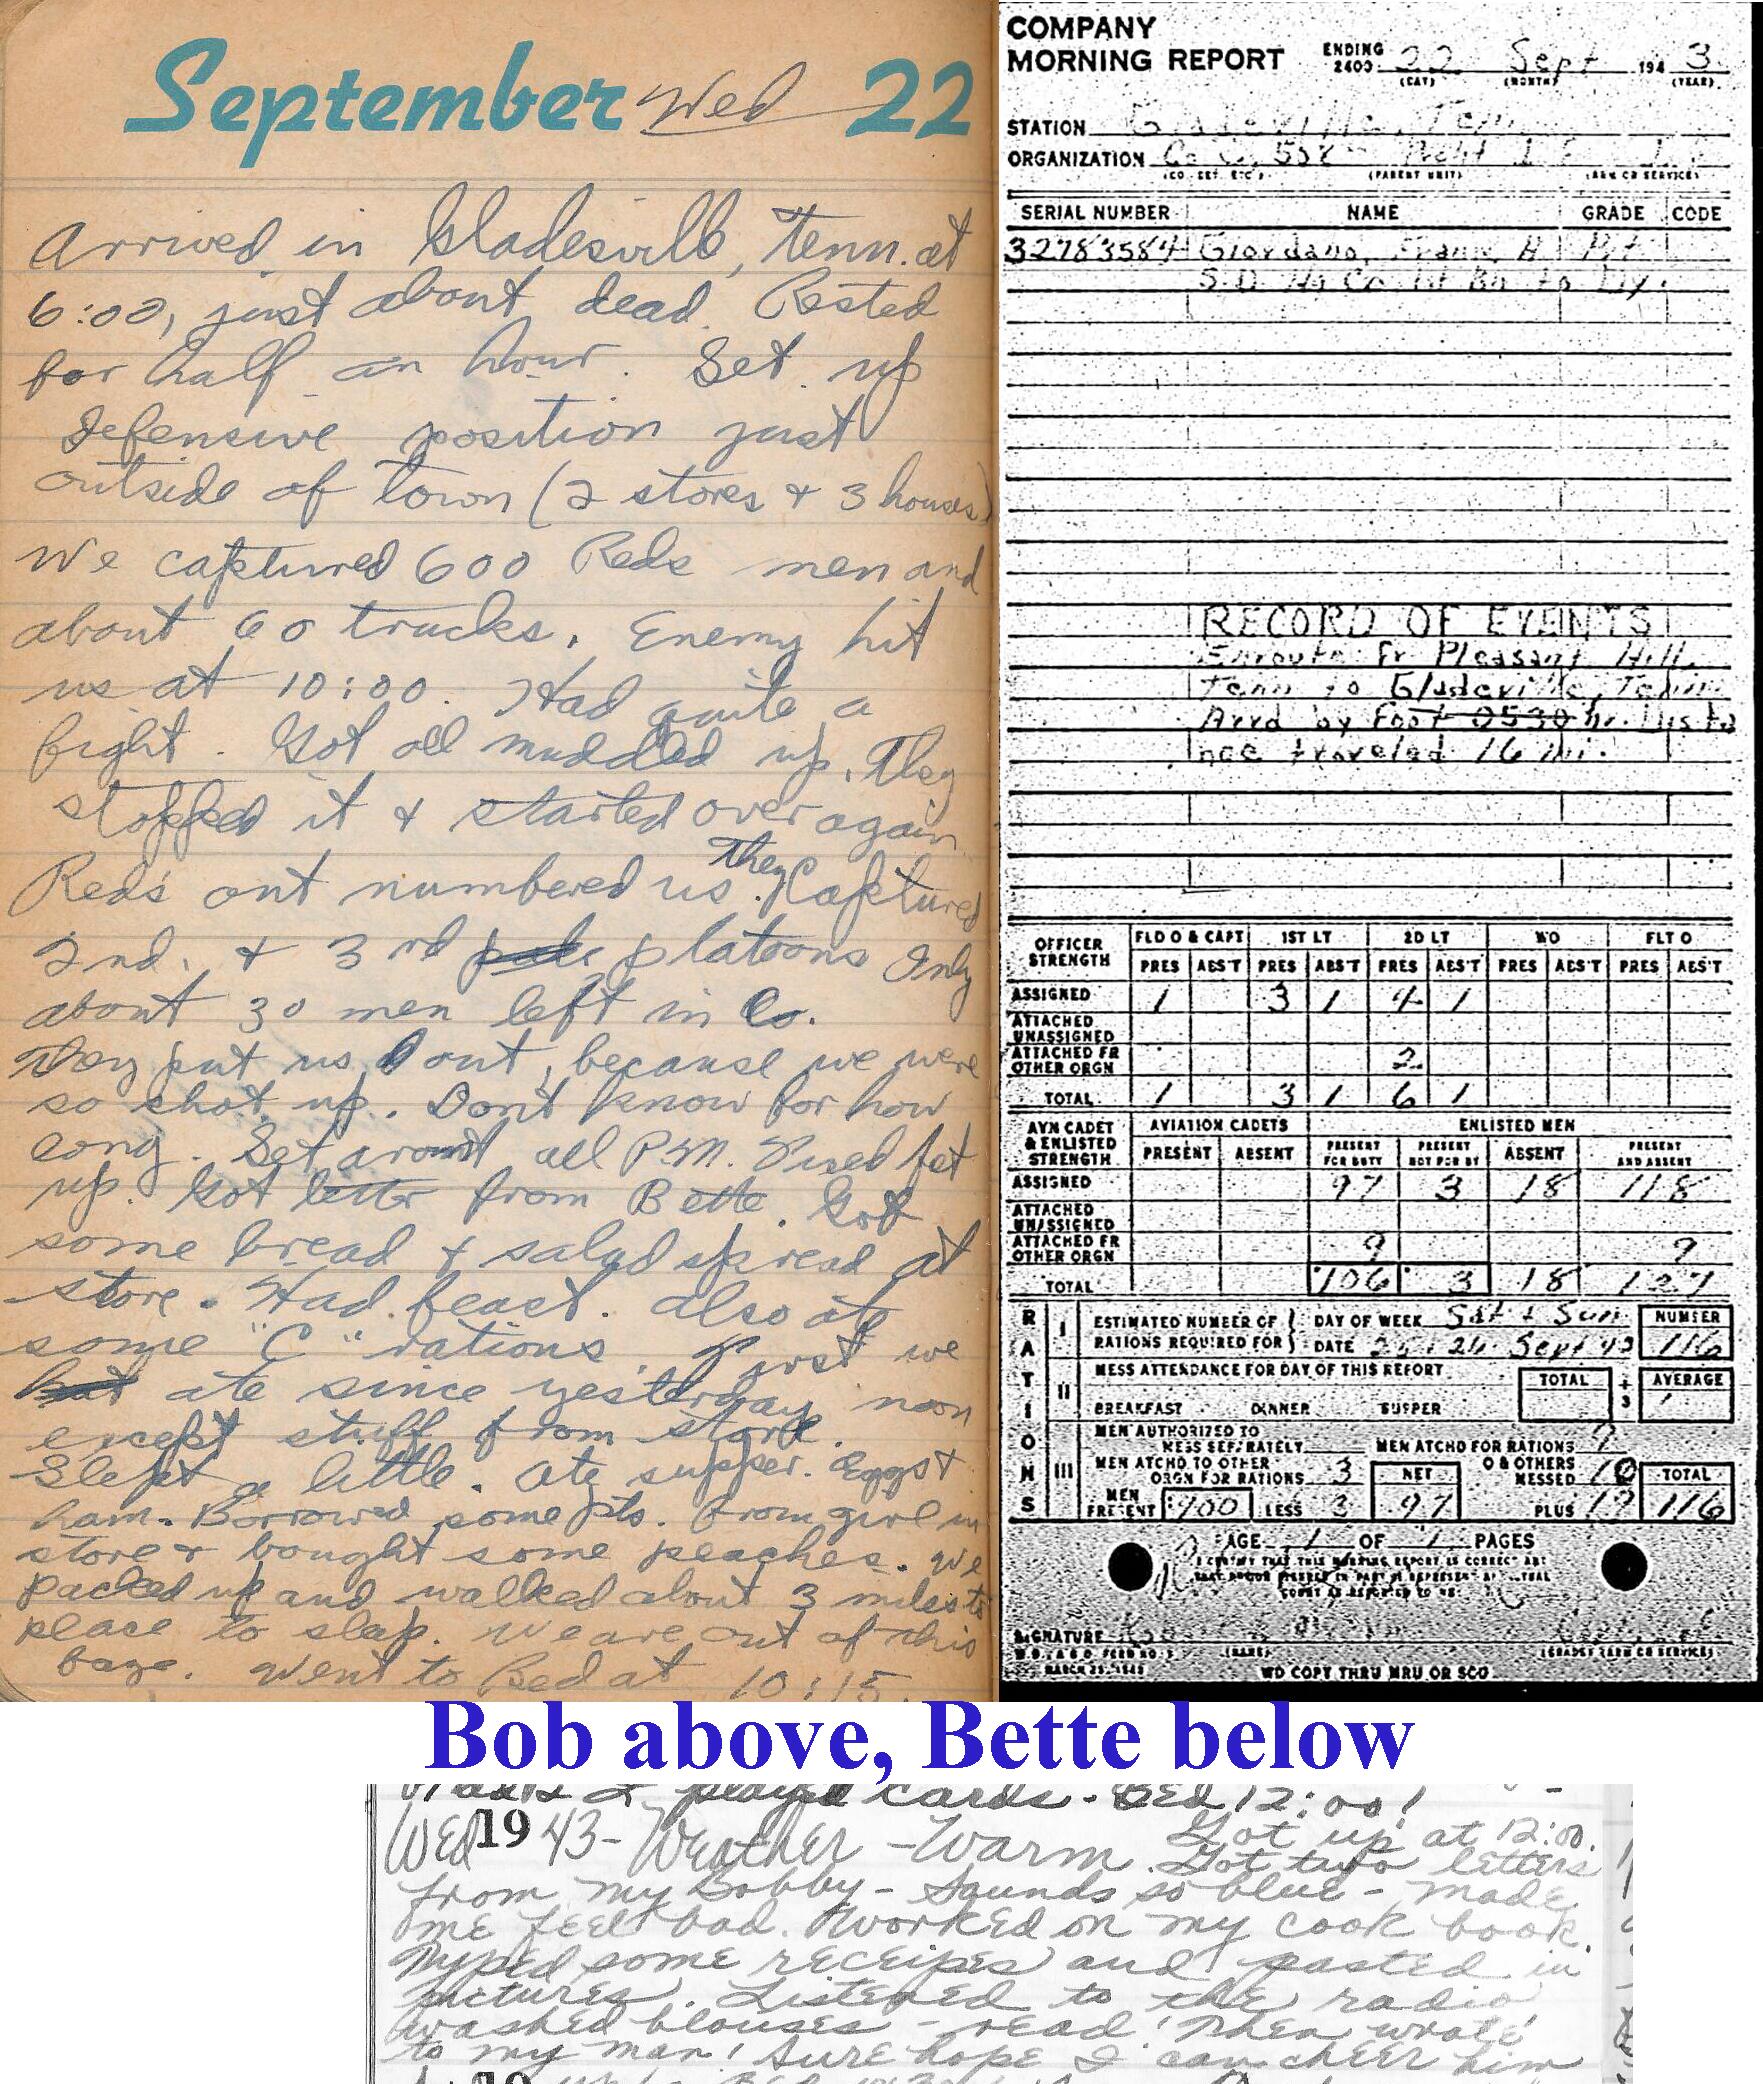 September Wed 22
Arrived in Gladesville, Tenn. at
6:00, just about dead. Rested
for half an hour. Set up
defensive position just
outside of town (2 stores + 3 houses)
We captured 600 Reds men and
about 60 trucks. Enemy hit
us at 10:00. Had quite a
fight. Got all muddled up. They
stopped it & started over again
Red's out numbered us. They Captured
2nd. & 3rd platoons Only
about 30 men left in Co.
They put us out, because we were
so shot up. Don't know for how
long. Set around all P.M. fet
up. Got letter from Bette. Got
some bread & salad spread at
store. Had feast. also ate
some "C" rations. First we
ate since yesterday noon
except stuff from store.
Slept a little. Ate supper. Eggs &
ham. Borrowed some pts. from girl in
store & bought some peaches. We
packed up and walked about 3 miles to
place to sleep. We are out of this
Went to Bed at 10:15.
COMPANY
MORNING REPORT ENDING 2400 22 Sept 1943
(DAY) (MONTH) (YEAR)
STATION Gladeville, Tenn
ORGANIZATION Co C,
(CO. DET. ETC.) (PARENT UNIT) (ARM OR SERVICE)
SERIAL NUMBER NAME GRADE CODE
32783584 Giordano, Frank A Pvt
S.D. Hq Co 1st Bn to Dy.
RECORD OF EVENTS
Enroute fr Pleasant Hill
Tenn to Gladeville, Tenn
Arrd by foot 0530 hr. Dista
nce traveled 16 mi.
OFFICER STRENGTH FLD O & CAPT 1ST LT 2D LT WO FLT O
PRES ABS'T PRES ABS'T PRES ABS'T PRES ABS'T PRES ABS'T
ASSIGNED 1 3 1 4 1
ATTACHED UNASSIGNED
ATTACHED FR OTHER ORGN 2
TOTAL 1 3 1 6 1
AVN CADET & ENLISTED STRENGTH AVIATION CADETS ENLISTED MEN
PRESENT ABSENT PRESENT FOR DUTY PRESENT NOT FOR DY ABSENT PRESENT AND ABSENT
ASSIGNED 97 3 18 118
ATTACHED UNASSIGNED
ATTACHED FR OTHER ORGN 9 9
TOTAL 106 3 18 127
RATIONS
I ESTIMATED NUMBER OF RATIONS REQUIRED FOR DAY OF WEEK Sat & Sun NUMBER
DATE Sept 43 116
II MESS ATTENDANCE FOR DAY OF THIS REPORT TOTAL ÷ 3 AVERAGE
BREAKFAST DINNER SUPPER
III MEN AUTHORIZED TO MESS SEPARATELY MEN ATCHD FOR RATIONS 9
MEN ATCHD TO OTHER ORGN FOR RATIONS 3 NET O & OTHERS MESSED 10 TOTAL
MEN PRESENT 100 LESS 3 97 PLUS 19 116
PAGE 1 OF 1 PAGES
I CERTIFY THAT THIS MORNING REPORT IS CORRECT
SIGNATURE
(NAME) (GRADE) (ARM OR SERVICE)
WD COPY THRU MRU OR SCU
Bob above, Bette below
played cards. BED 12:00!
WED 1943- Weather - Warm. Got up at 12:00.
Got two letters
from my Bobby - Sounds so blue - made
me feel bad. Worked on my cook book.
Typed some receipes and pasted in
pictures. Listened to the radio,
washed blouses - read! Then wrote
to my man! Sure hope I can cheer him
19